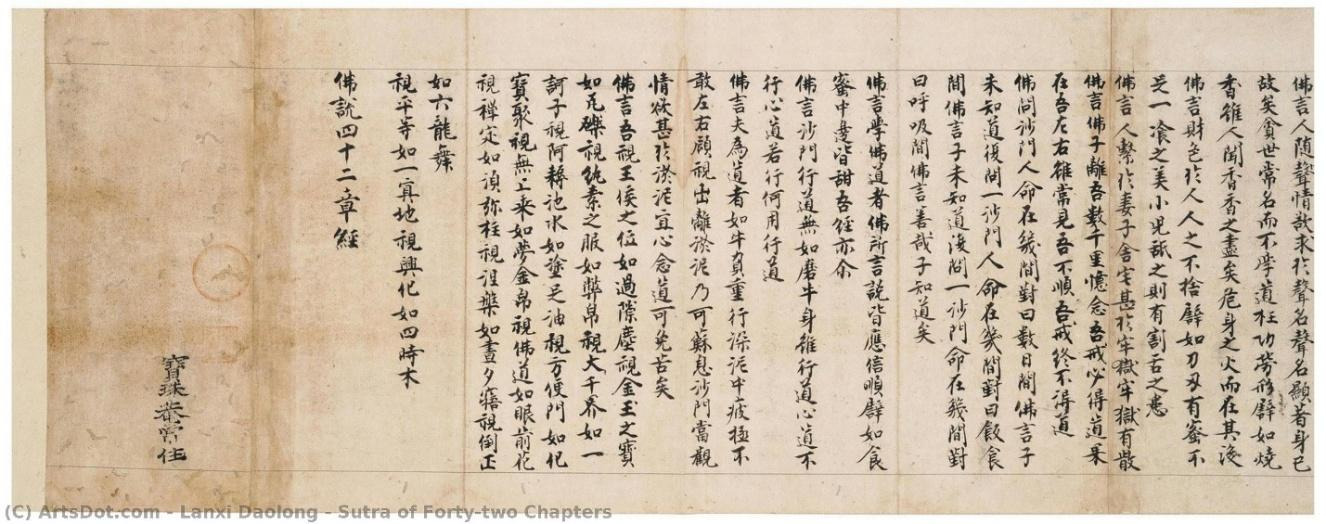 佛言人随聲情欲求於聲名聲名顯著身已
故矣貪世常名而不學道枉功勞形譬如燒
香雖人聞香香之盡矣危身之火而在其後
佛言財色於人人之不捨譬如刀刃有蜜不
足一飡之美小兒舐之則有割舌之患
佛言人繫於妻子舍宅甚於牢獄牢獄有散
佛言佛子離吾數千里憶念吾戒必得道果
在吾左右雖常見吾不順吾戒終不得道
佛問沙門人命在幾間對曰數日間佛言子
未知道復問一沙門人命在幾間對曰飯食
間佛言子未知道復問一沙門命在幾間對
曰呼吸間佛言善哉子知道矣
佛言學佛道者佛所言說皆應信順譬如食
蜜中邊皆甜吾經亦尒
佛言沙門行道無如磨牛身雖行道心道不
行心道若行何用行道
佛言夫為道者如牛負重行深泥中疲極不
敢左右顧視出離淤泥乃可蘇息沙門當觀
情欲甚於淤泥直心念道可免苦矣
佛言吾視王侯之位如過隙塵視金玉之寶
如瓦礫視紈素之服如弊帛視大千界如一
訶子視阿耨池水如塗足油視方便門如化
寶聚視無上乘如夢金帛視佛道如眼前花
視禪定如須弥柱視涅槃如晝夕寤視倒正
如六龍舞
視平等如一真地視興化如四時木
佛說四十二章經
寶珠菴常住
(C) ArtsDot.com - Lanxi Daolong - Sutra of Forty-two Chapters